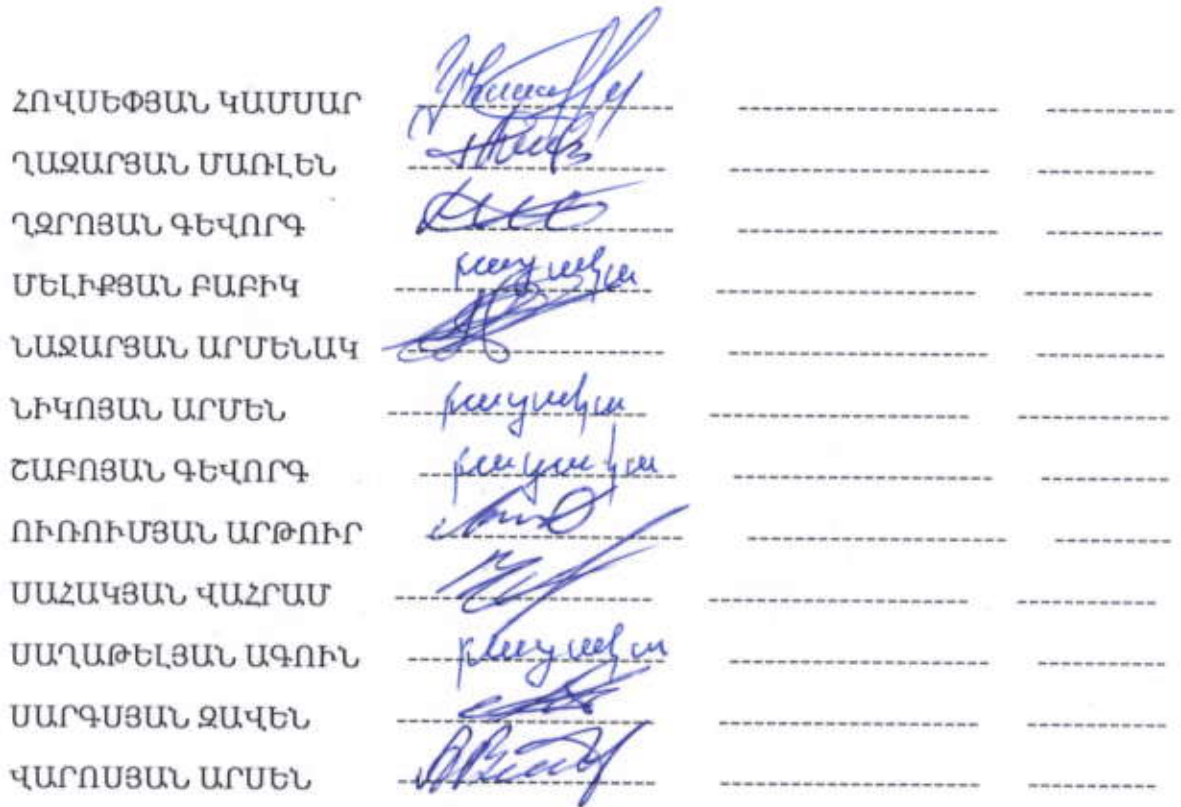 ՀՈՎՍԵՓՅԱՆ ԿԱՄՍԱՐ
ՂԱԶԱՐՅԱՆ ՄԱՌԼԵՆ
ՂԶՐՈՅԱՆ ԳԵՎՈՐԳ
ՄԵԼԻՔՅԱՆ ԲԱԲԻԿ բացակա
ՆԱՋԱՐՅԱՆ ԱՐՄԵՆԱԿ
ՆԻԿՈՅԱՆ ԱՐՄԵՆ բացակա
ՇԱԲՈՅԱՆ ԳԵՎՈՐԳ բացակա
ՈՒՌՈՒՄՅԱՆ ԱՐԹՈՒՐ
ՍԱՀԱԿՅԱՆ ՎԱՀՐԱՄ
ՍԱՂԱԹԵԼՅԱՆ ԱԳՈՒՆ բացակա
ՍԱՐԳՍՅԱՆ ԶԱՎԵՆ
ՎԱՐՈՍՅԱՆ ԱՐՍԵՆ